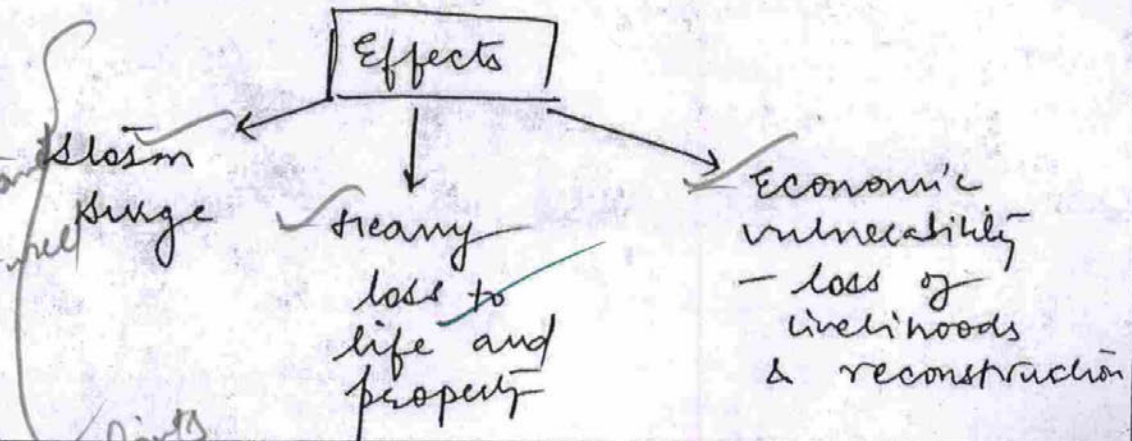 Effects
Storm
surge
Heavy
loss to
life and
property
Economic
vulnerability
- loss of
livelihoods
& reconstruction
Points